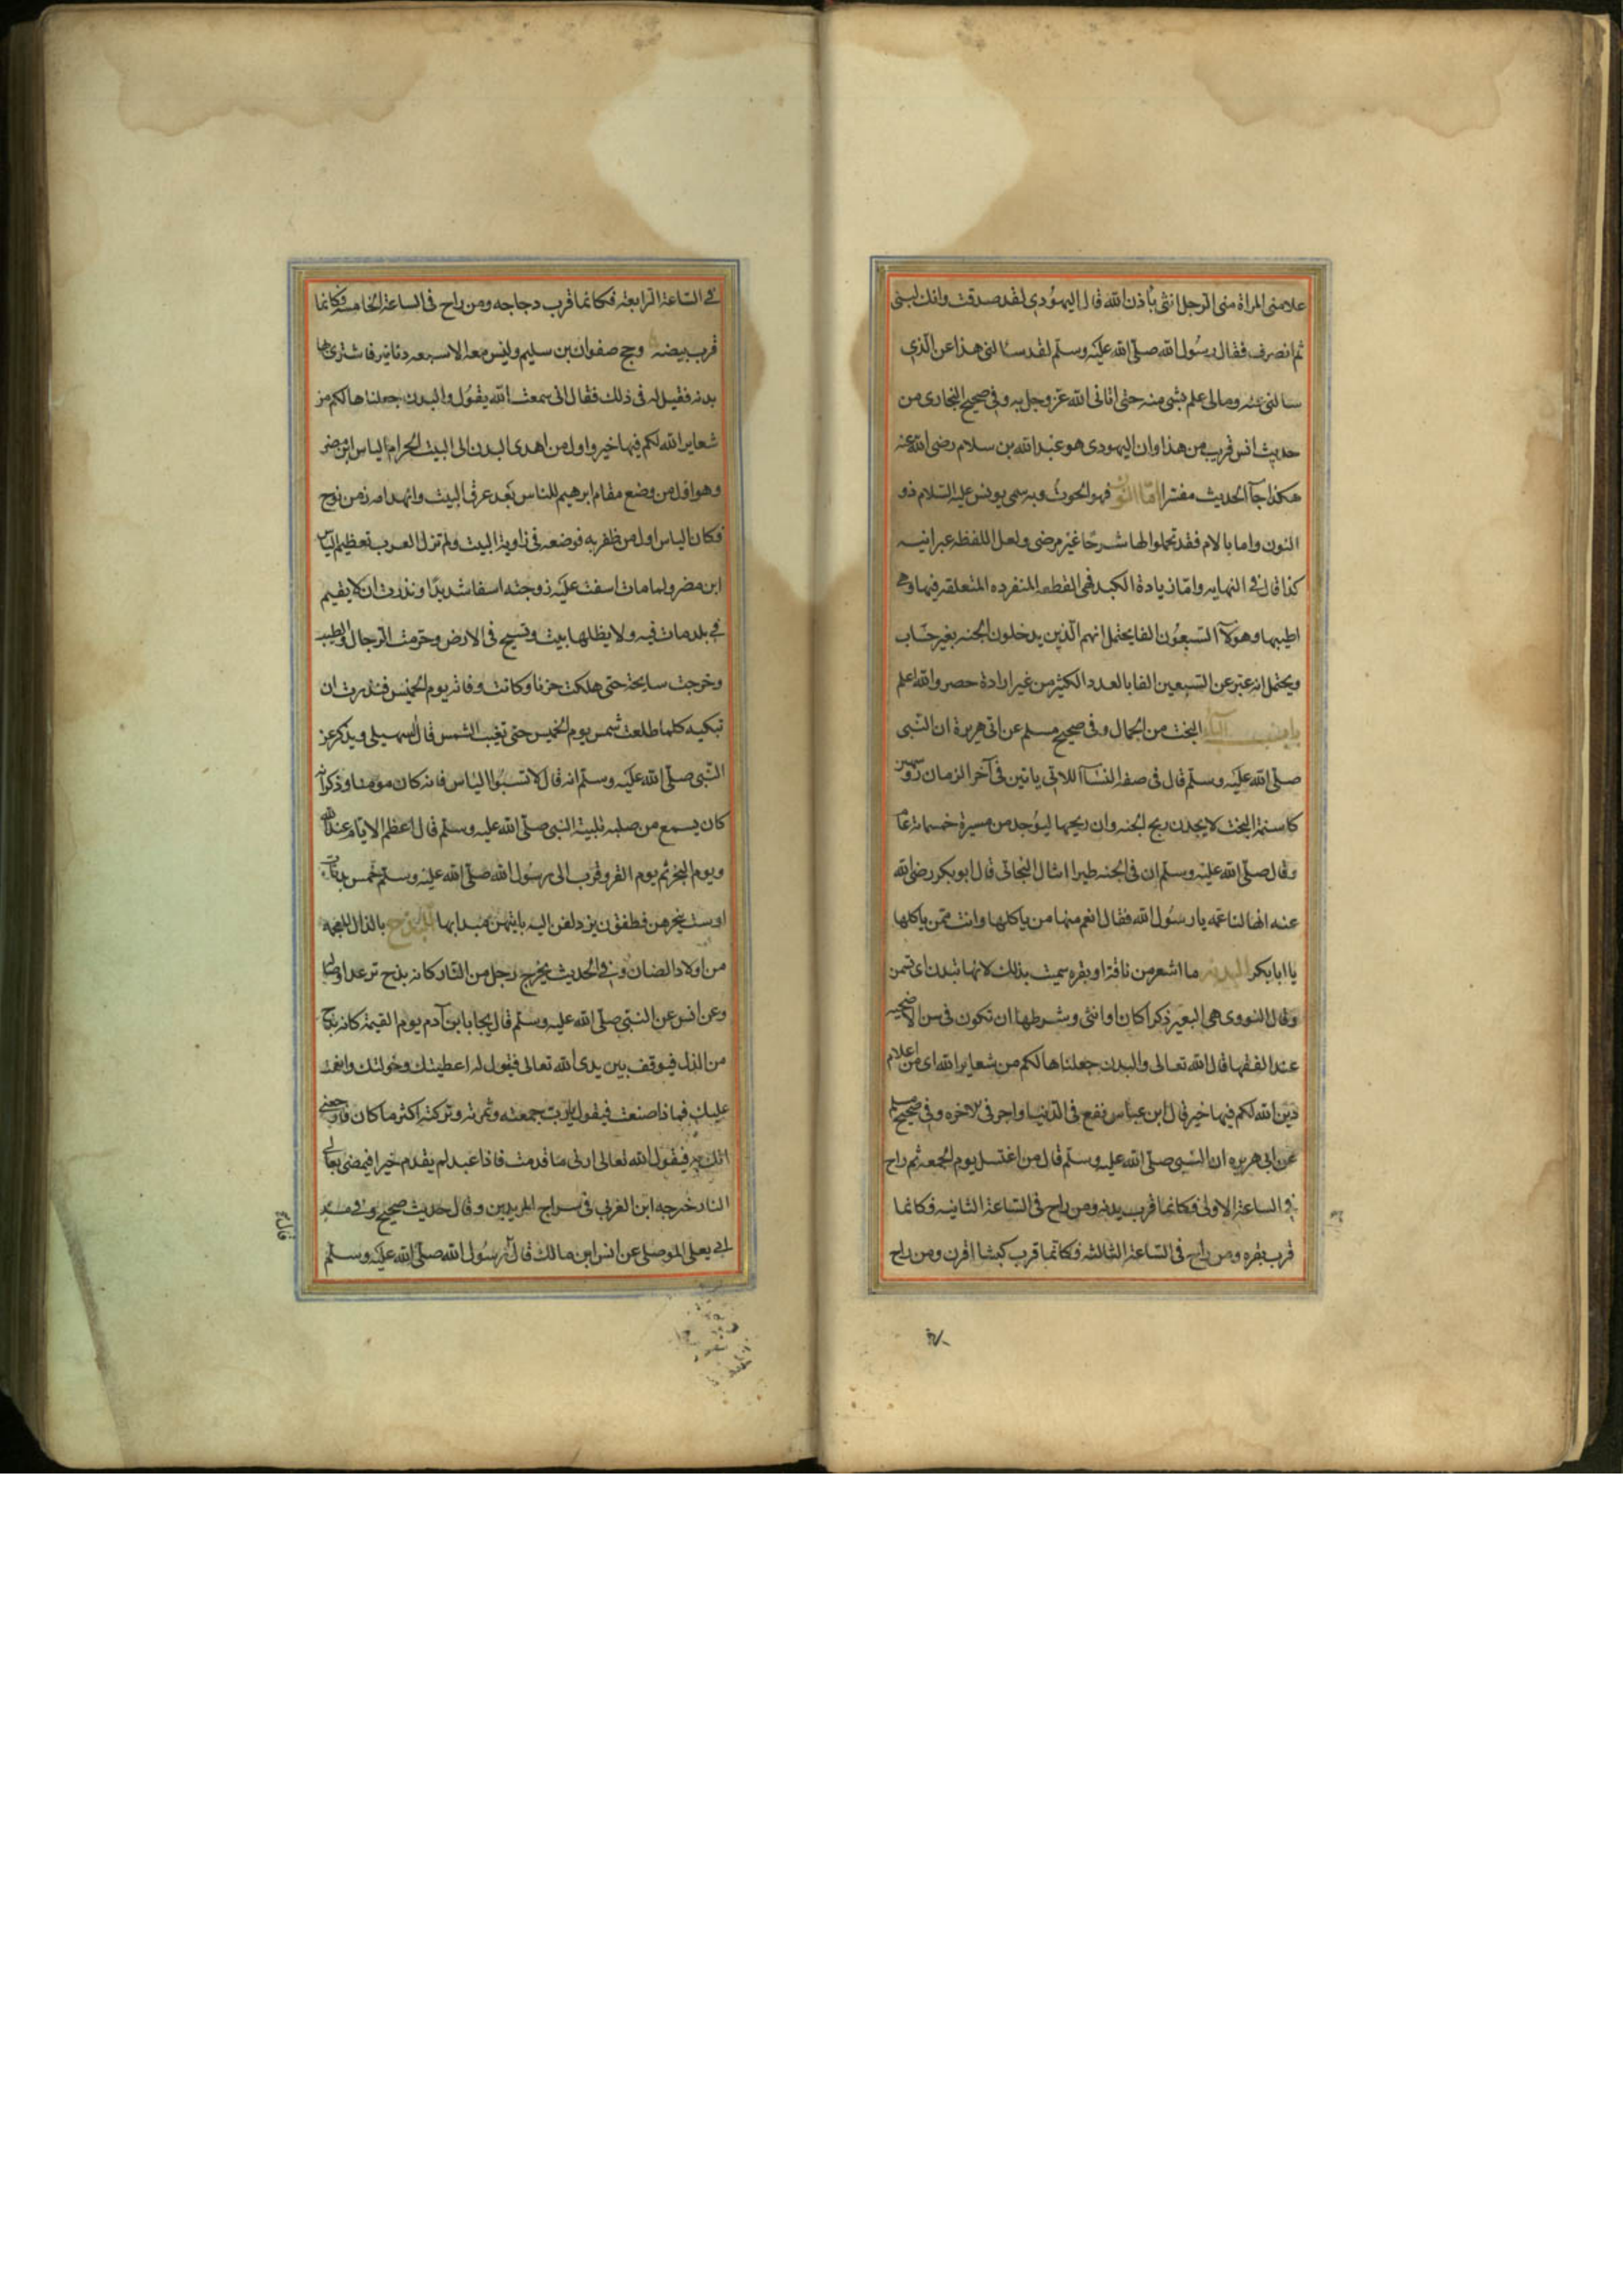 علا منى المراة منى الرجل انثى باذن الله قال اليهودى لقد صدقت وانك لنبى
ثم انصرف فقال رسول الله صلى الله عليه وسلم لقد سالنى هذا عن الذى
سالنى عنه ومالى علم بشى منه حتى اتانى الله عز وجل به وفى صحيح البخارى من
حديث انس قريب من هذا وان اليهودى هو عبد الله بن سلام رضى الله عنه
هكذا جآ الحديث مفسرا اما النون فهو الحوت وبه سمى يونس عليه السلام ذو
النون واما بالام فقد تحملوا لها شرحا غير مرضى ولعل اللفظه عبرانيه
كذا قال فى النهايه واما زيادة الكبد فهى القطعه المنفرده المتعلقه فيها وهى
اطيبها وهولآ السبعون الفا يحتمل انهم الذين يدخلون الجنه بغير حساب
ويحتمل انه عبر عن السبعين الفا بالعدد الكثير من غير ارادة حصر والله اعلم
البخت من الجمال وفى صحيح مسلم عن ابى هريرة ان النبى
صلى الله عليه وسلم قال فى صفه النسآ اللاتى ياتين فى آخر الزمان روسهن
كاسنمة البخت لا يجدن ريح الجنه وان ريحها ليوجد من مسيرة خمسماية عام
وقال صلى الله عليه وسلم ان فى الجنه طيرا امثال البخاتى قال ابو بكر رضى الله
عنه انها لناعمه يا رسول الله فقال انعم منها من ياكلها وانت ممن ياكلها
يا ابا بكر البدنه ما اشعر من ناقة او بقره سميت بذلك لانها تبدن اى تسمن
وقال النووى هى البعير ذكرا كان او انثى وشرطها ان تكون فى سن الاضحيه
عند الفقها قال الله تعالى والبدن جعلناها لكم من شعاير الله اى من اعلام
دين الله لكم فيها خير قال ابن عباس نفع فى الدنيا واجر فى الاخره وفى صحيح مسلم
عن ابى هريره ان النبى صلى الله عليه وسلم قال من اغتسل يوم الجمعه ثم راح
فى الساعة الاولى فكانما قرب بدنه ومن راح فى الساعة الثانيه فكانما
قرب بقره ومن راح فى الساعة الثالثه فكانما قرب كبشا اقرن ومن راح
فى الساعة الرابعه فكانما قرب دجاجه ومن راح فى الساعة الخامسه فكانما
قرب بيضه وحج صفوان بن سليم وليس معه الا سبعه دنانير فاشترى بها
بدنه فقيل له فى ذلك فقال انى سمعت الله يقول والبدن جعلناها لكم من
شعاير الله لكم فيها خير واول من اهدى البدن الى البيت الحرام الياس ابن مضر
وهو اول من وضع مقام ابرهيم للناس بعد غرق البيت وانهدامه زمن نوح
فكان الياس اول من ظفر به فوضعه فى زاوية البيت ولم تزل العرب تعظم الياس
ابن مضر ولما مات اسفت عليه زوجته اسفا شديدا ونذرت ان لا يقيم
فى بلد مات فيه ولا يظلها بيت وتسيح فى الارض وحرمت الرجال والطيب
وخرجت سايحة حتى هلكت حزنا وكانت وفاته يوم الخميس فنذرت ان
تبكيه كلما طلعت شمس يوم الخميس حتى تغيب الشمس قال السهيلى ويذكر عن
النبى صلى الله عليه وسلم انه قال لا تسبوا الياس فانه كان مومنا وذكر انه
كان يسمع من صلبه تلبية النبى صلى الله عليه وسلم قال اعظم الايام عند الله
ويوم النحر ثم يوم القر وقرب الى رسول الله صلى الله عليه وسلم خمس بدنات
او ست ينحرهن فطفقن يزدلفن اليه بايتهن يبدا بها البذج بالذال المعجمه
من اولاد الضان وفى الحديث يخرج رجل من النار كانه بذج ترعد اوصاله
وعن انس عن النبى صلى الله عليه وسلم قال يجا بابن آدم يوم القيمة كانه بذج
من الذل فيوقف بين يدى الله تعالى فيقول له اعطيتك وخولتك وانعمت
عليك فماذا صنعت فيقول يارب جمعته وثمرته وتركته اكثر ما كان فارجعنى
اتك به فيقول الله تعالى ارنى ما قدمت فاذا عبد لم يقدم خيرا فيمضى به الى
النار خرجه ابن العربى فى سراج المريدين وقال حديث صحيح وفى مسند
ابى يعلى الموصلى عن انس ابن مالك قال رسول الله صلى الله عليه وسلم